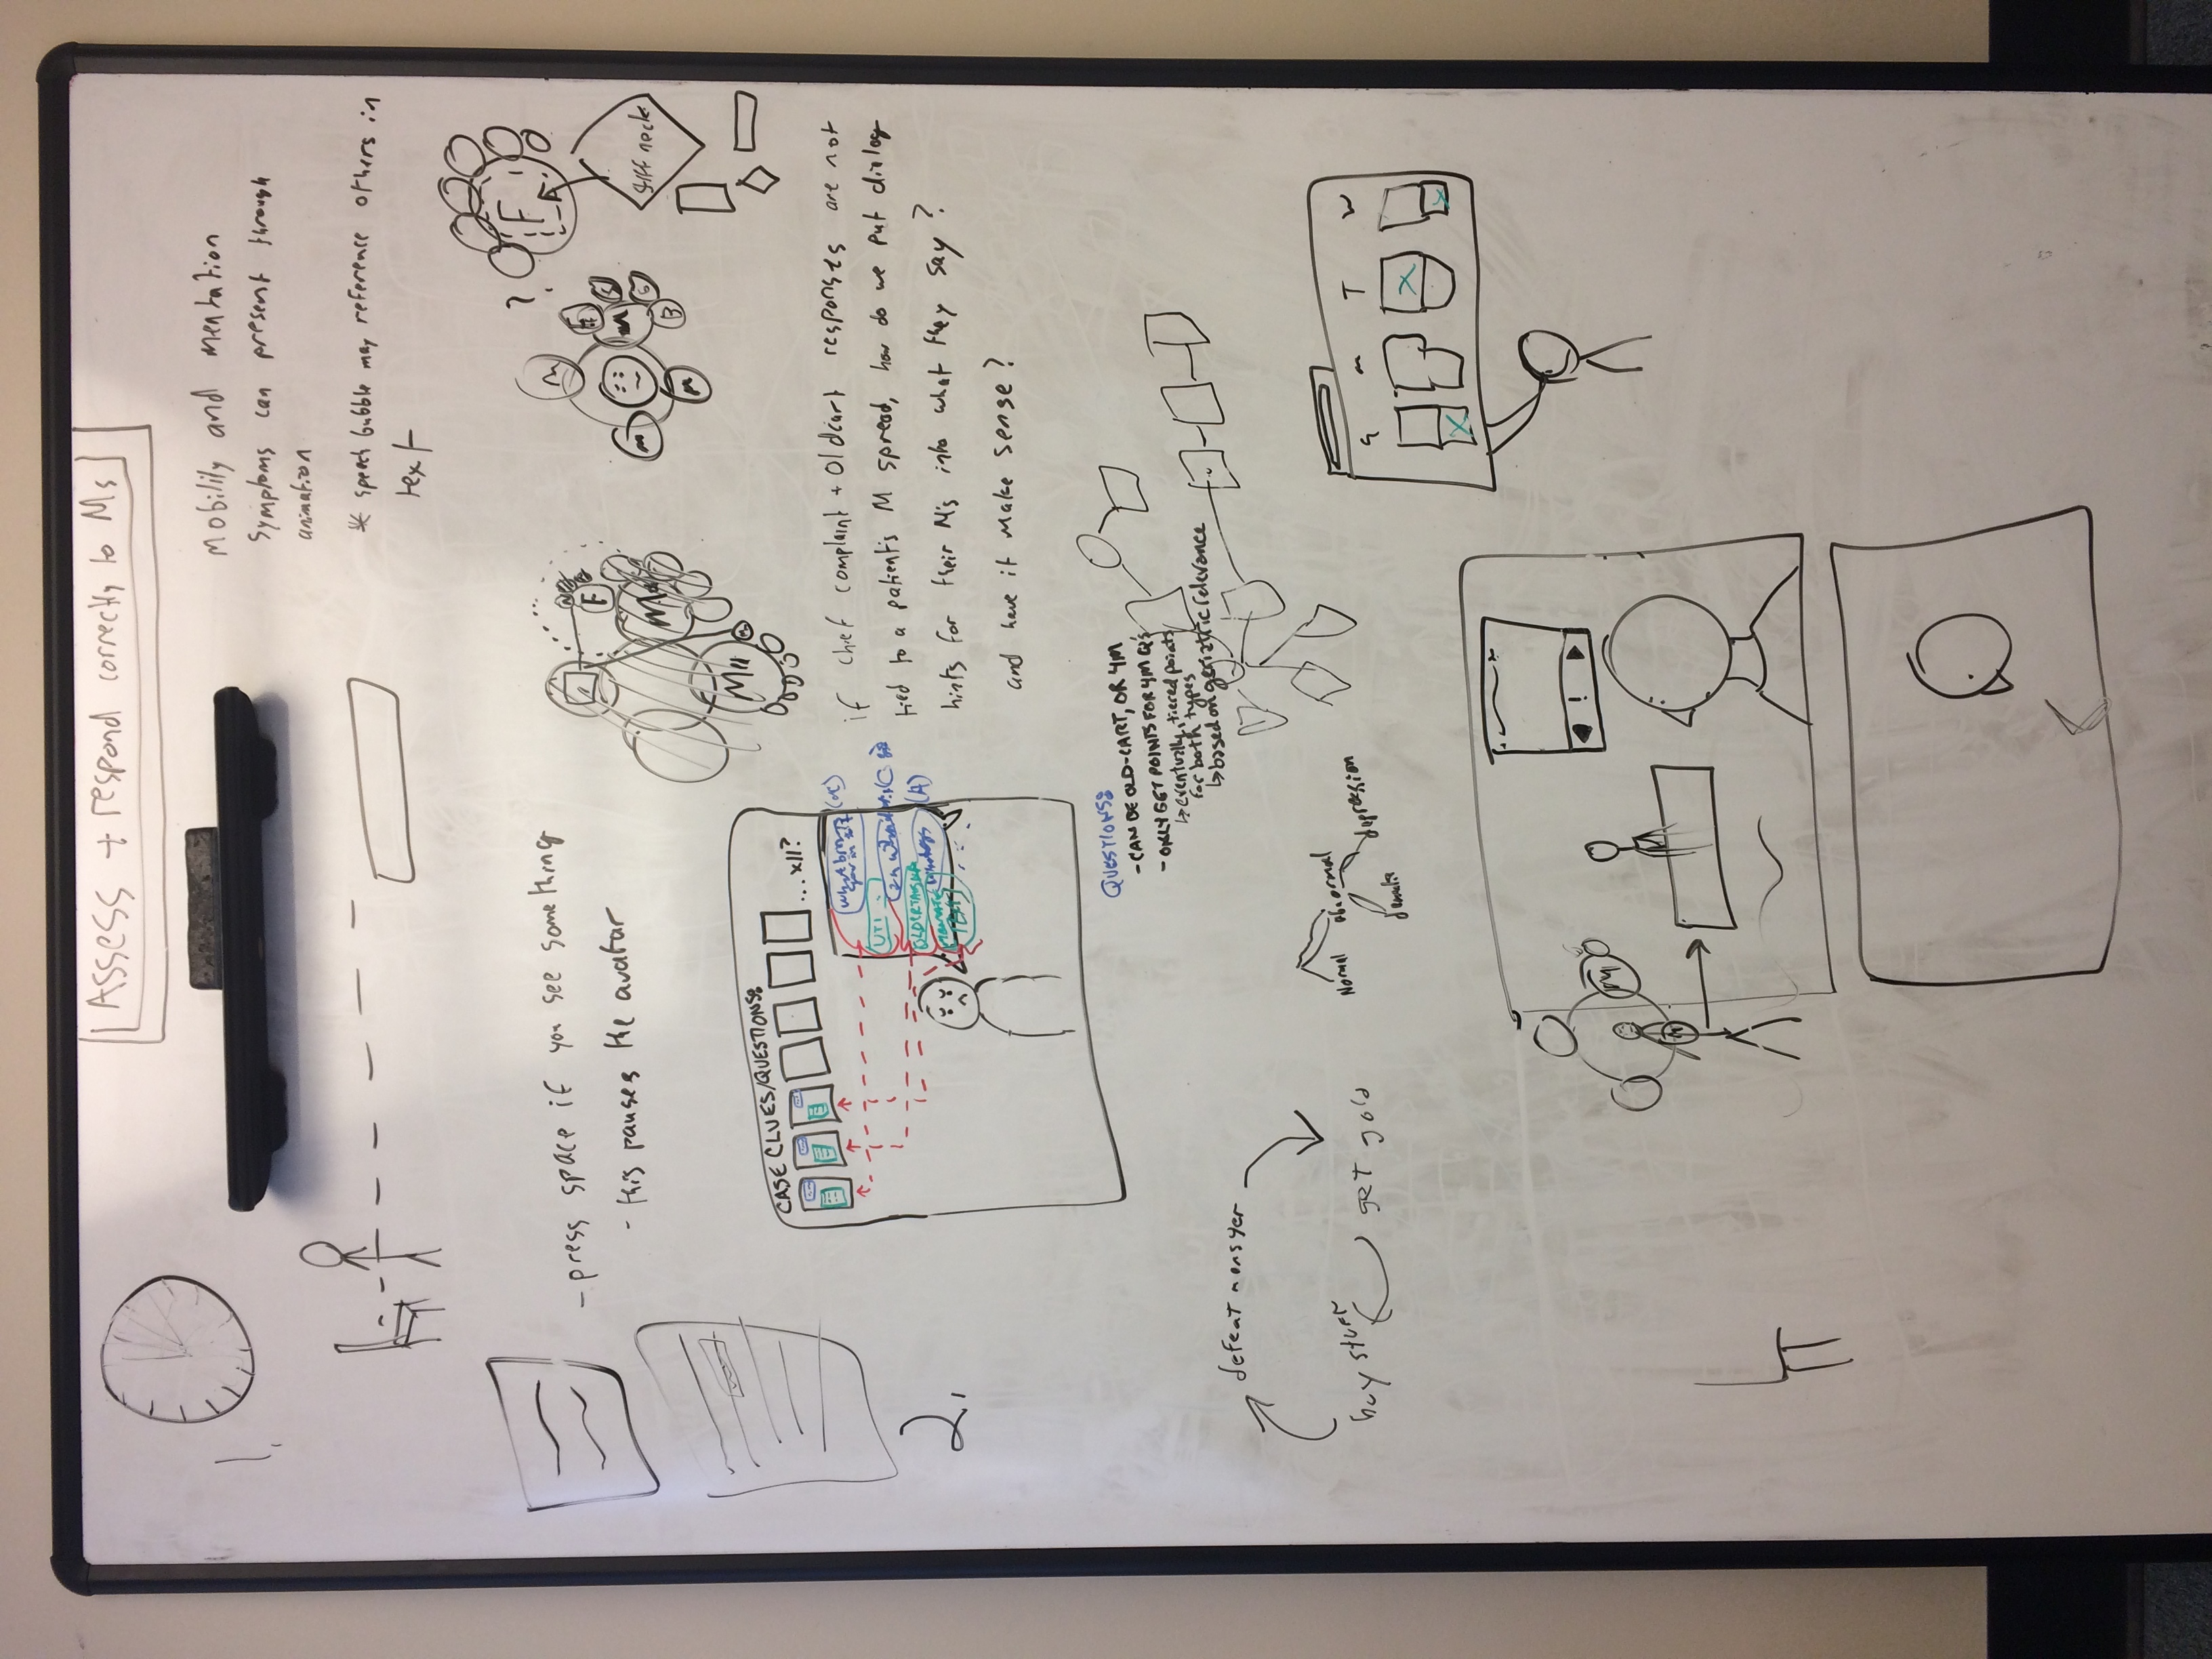 Assess + respond correctly to Ms
1.
Mobility and mentation
Symptoms can present through
animation
* speech bubble may reference others in
text
- press space if you see something
- this pauses the avatar
F
?
M
F
M
m
m
B
M
stiff neck
CASE CLUES/QUESTIONS:
...x11?
what brings
you in
UTI
(A)
2.
if chief complaint + Oldcart responses are not
tied to a patient's M spread, how do we put dialog
hints for their M's into what they say?
and have it make sense?
QUESTIONS:
- CAN BE OLD-CART, OR 4M
- ONLY GET POINTS FOR 4M Q's
↳ eventually, tiered points
for both types
↳ based on geriatric relevance
defeat monster
buy stuff
get gold
Normal
Abnormal
depression
M T W
X
X
X
!
M